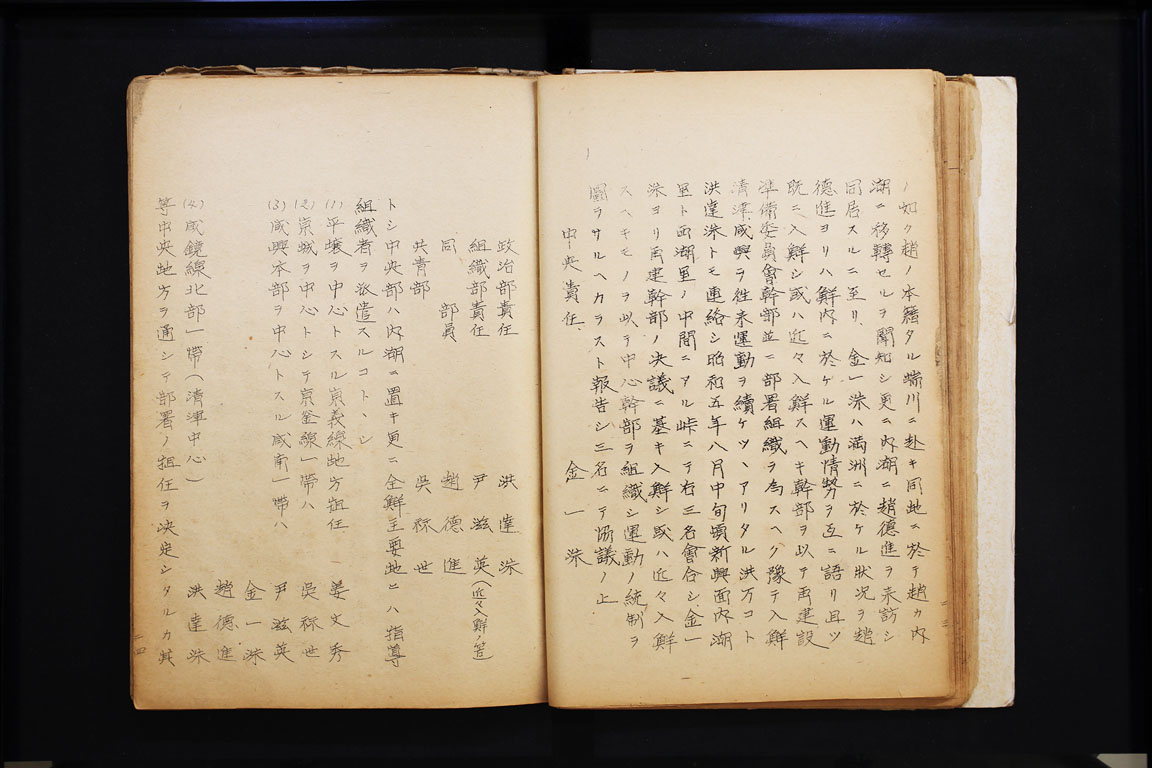 ノ如ク趙ノ本籍タル端川ニ赴キ同地ニ於テ趙カ内
湖ニ移轉セルヲ聞知シ更ニ内湖ニ趙德進ヲ來訪シ
同居スルニ至リ、金一洙ハ滿洲ニ於ケル狀況ヲ趙
德進ヨリハ鮮内ニ於ケル運動情勢ヲ互ニ語リ且ツ
既ニ入鮮シ或ハ近々入鮮スヘキ幹部ヲ以テ再建設
準備委員會幹部並ニ部署組織ヲ為スヘク豫テ入鮮
清津咸興ヲ往来運動ヲ續ケツヽアリタル洪万コト
洪達洙トモ連絡シ昭和五年八月中旬頃新興面内湖
里ト西湖里ノ中間ニアル峠ニテ右三名會合シ金一
洙ヨリ再建幹部ノ決議ニ基キ入鮮シ或ハ近々入鮮
スヘキモノヲ以テ中心幹部ヲ組織シ運動ノ統制ヲ
圖ラサルヘカラスト報告シ三名ニテ協議ノ上
中央責任 金一洙
二三
政治部責任 洪達洙
組織部責任 尹滋英(近々入鮮ノ筈)
同 部員 趙德進
共青部 吳秾世
トシ中央部ハ内湖ニ置キ更ニ全鮮主要地ニハ指導
組織者ヲ派遣スルコトヽシ
(1)平壤ヲ中心トスル京義線地方担任 姜文秀
(2)京城ヲ中心トシテ京釜線一帶ハ 吳秾世
(3)咸興本部ヲ中心トスル咸南一帶ハ 尹滋英
金一洙
趙德進
(4)咸鏡線北部一帶(清津中心) 洪達洙
等中央地方ヲ通シテ部署ノ担任ヲ決定シタルカ其
二四